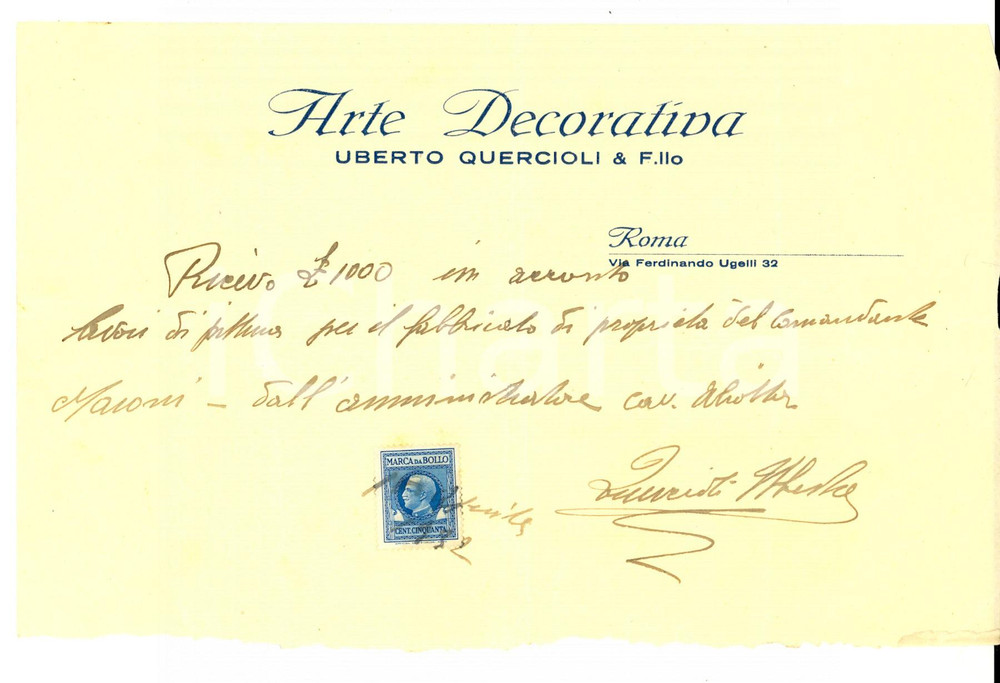 Arte Decorativa
UBERTO QUERCIOLI & F.llo
Roma
Via Ferdinando Ugelli 32
Ricevo £ 1000 in acconto
lavori di pittura per il fabbricato di proprietà del Comandante
– dall'amministratore cav.
MARCA DA BOLLO
CENT. CINQUANTA
Quercioli Uberto
iCharta